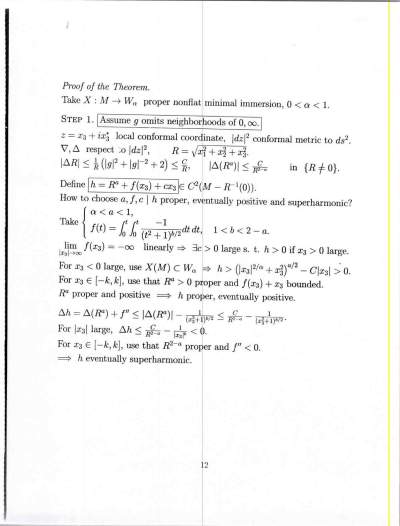 Proof of the Theorem.
Take X : M → Wα proper nonflat minimal immersion, 0 < α < 1.
STEP 1. Assume g omits neighborhoods of 0, ∞.
z = x₃ + ix₃* local conformal coordinate, |dz|² conformal metric to ds².
∇, Δ respect .o |dz|², R = √(x₁² + x₂² + x₃²).
|ΔR| ≤ 1/R (|g|² + |g|⁻² + 2) ≤ C/R, |Δ(Rᵃ)| ≤ C/R²⁻ᵃ in {R ≠ 0}.
Define h = Rᵃ + f(x₃) + cx₃ ∈ C²(M − R⁻¹(0)).
How to choose a, f, c | h proper, eventually positive and superharmonic?
Take { α < a < 1,
f(t) = ∫₀ᵗ ∫₀ᵗ −1/(t² + 1)^(b/2) dt dt, 1 < b < 2 − a.
lim |x₃|→∞ f(x₃) = −∞ linearly ⇒ ∃c > 0 large s. t. h > 0 if x₃ > 0 large.
For x₃ < 0 large, use X(M) ⊂ Wα ⇒ h > (|x₃|^(2/α) + x₃²)^(a/2) − C|x₃| > 0.
For x₃ ∈ [−k, k], use that Rᵃ > 0 proper and f(x₃) + x₃ bounded.
Rᵃ proper and positive ⟹ h proper, eventually positive.
Δh = Δ(Rᵃ) + f″ ≤ |Δ(Rᵃ)| − 1/(x₃²+1)^(b/2) ≤ C/R²⁻ᵃ − 1/(x₃²+1)^(b/2).
For |x₃| large, Δh ≤ C/R²⁻ᵃ − 1/|x₃|ᵇ < 0.
For x₃ ∈ [−k, k], use that R²⁻ᵃ proper and f″ < 0.
⟹ h eventually superharmonic.
12